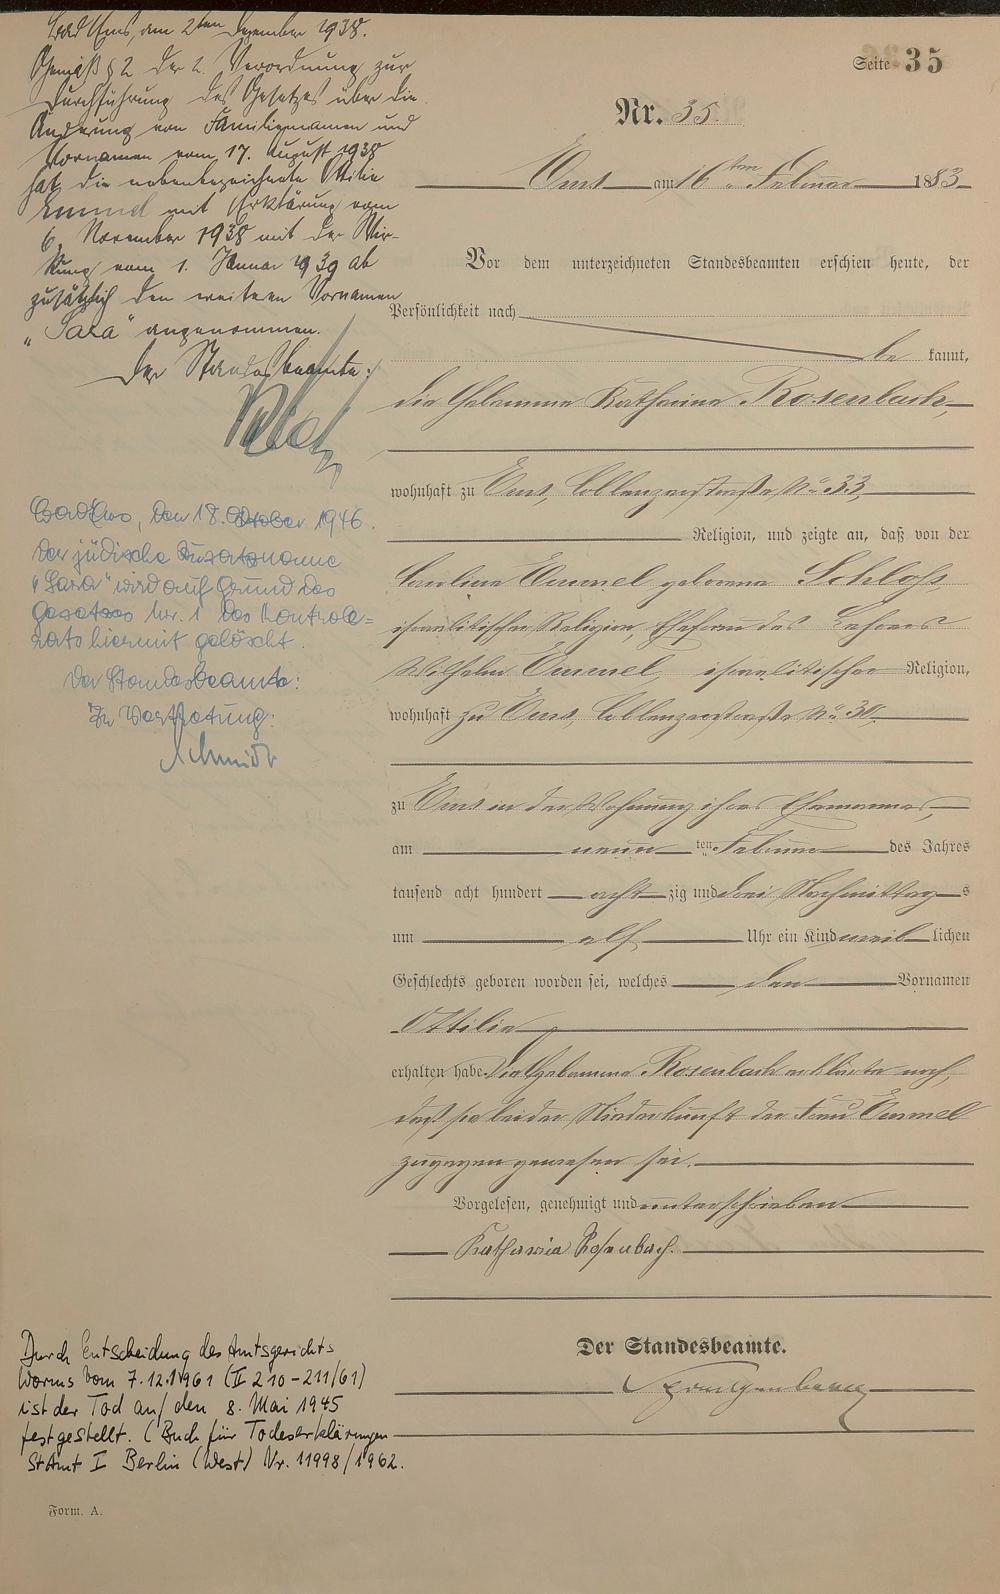 Bad Ems, am 2ten Dezember 1938.
Gemäß § 2 der 2. Verordnung zur
Durchführung des Gesetzes über die
Änderung von Familiennamen und
Vornamen vom 17. August 1938
hat die nebenbezeichnete Ottilie
Emmel mit Erklärung vom
6. November 1938 mit der Wir-
kung vom 1. Januar 1939 ab
zusätzlich den weiteren Vornamen
„Sara" angenommen.
Der Standesbeamte:
Bad Ems, den 18. Oktober 1946.
Der jüdische Zusatzname
"Sara" wird auf Grund des
Gesetzes Nr. 1 des Kontroll=
rats hiermit gelöscht.
Der Standesbeamte:
In Vertretung:
Schmidt
Durch Entscheidung des Amtsgerichts
Worms vom 7.12.1961 (II 210-211/61)
ist der Tod auf den 8. Mai 1945
festgestellt. (Buch für Todeserklärungen
StAmt I Berlin (West) Nr. 11998/1962.
Form. A.
Seite 35
Nr. 35.
Ems am 16ten Februar 1883
Vor dem unterzeichneten Standesbeamten erschien heute, der
Persönlichkeit nach
be kannt,
die Hebamme Katharina Rosenbach,
wohnhaft zu Ems, Coblenzerstraße No 33,
Religion, und zeigte an, daß von der
Caroline Emmel geborene Schloß
israelitischer Religion, Ehefrau des Lehrers
Wilhelm Emmel, israelitischer Religion,
wohnhaft zu Ems, Coblenzerstraße No
zu Ems in der Wohnung ihres Ehemannes,
am neun ten Februar des Jahres
tausend acht hundert acht zig und drei Nachmittags
um elf Uhr ein Kind weib lichen
Geschlechts geboren worden sei, welches den Vornamen
Ottilie
erhalten habe. Die Hebamme Rosenbach erklärte noch,
daß sie bei der Niederkunft der Frau Emmel
zugegen gewesen sei.
Vorgelesen, genehmigt und unterschrieben
Katharina Rosenbach.
Der Standesbeamte.
Spangenberg